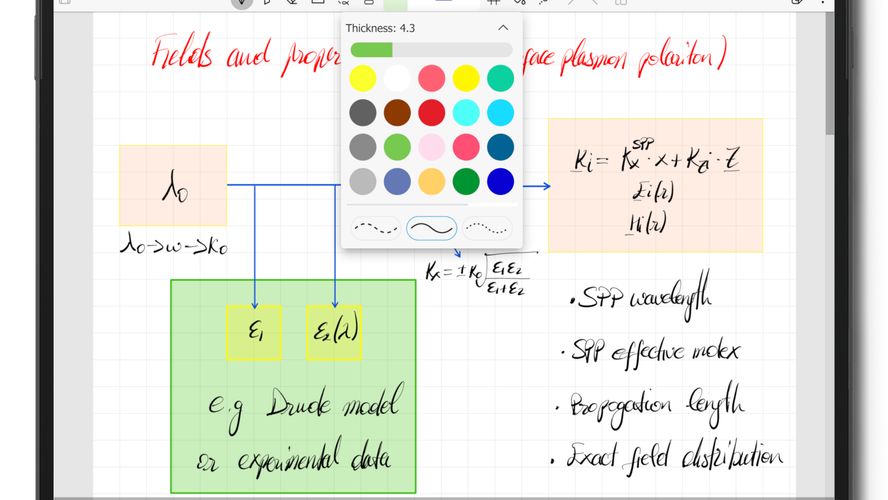 Thickness: 4.3
Fields and proper face plasmon polariton)
λ₀
λ₀ → ω → k₀
Ki = Kx^SPP · x + Kzi · z
Ei(r)
Hi(r)
Kx = ± K₀ √(ε₁ε₂/(ε₁+ε₂))
ε₁ ε₂(λ)
e.g Drude model
or experimental data
· SPP wavelength
· SPP effective index
· Propagation length
· Exact field distribution